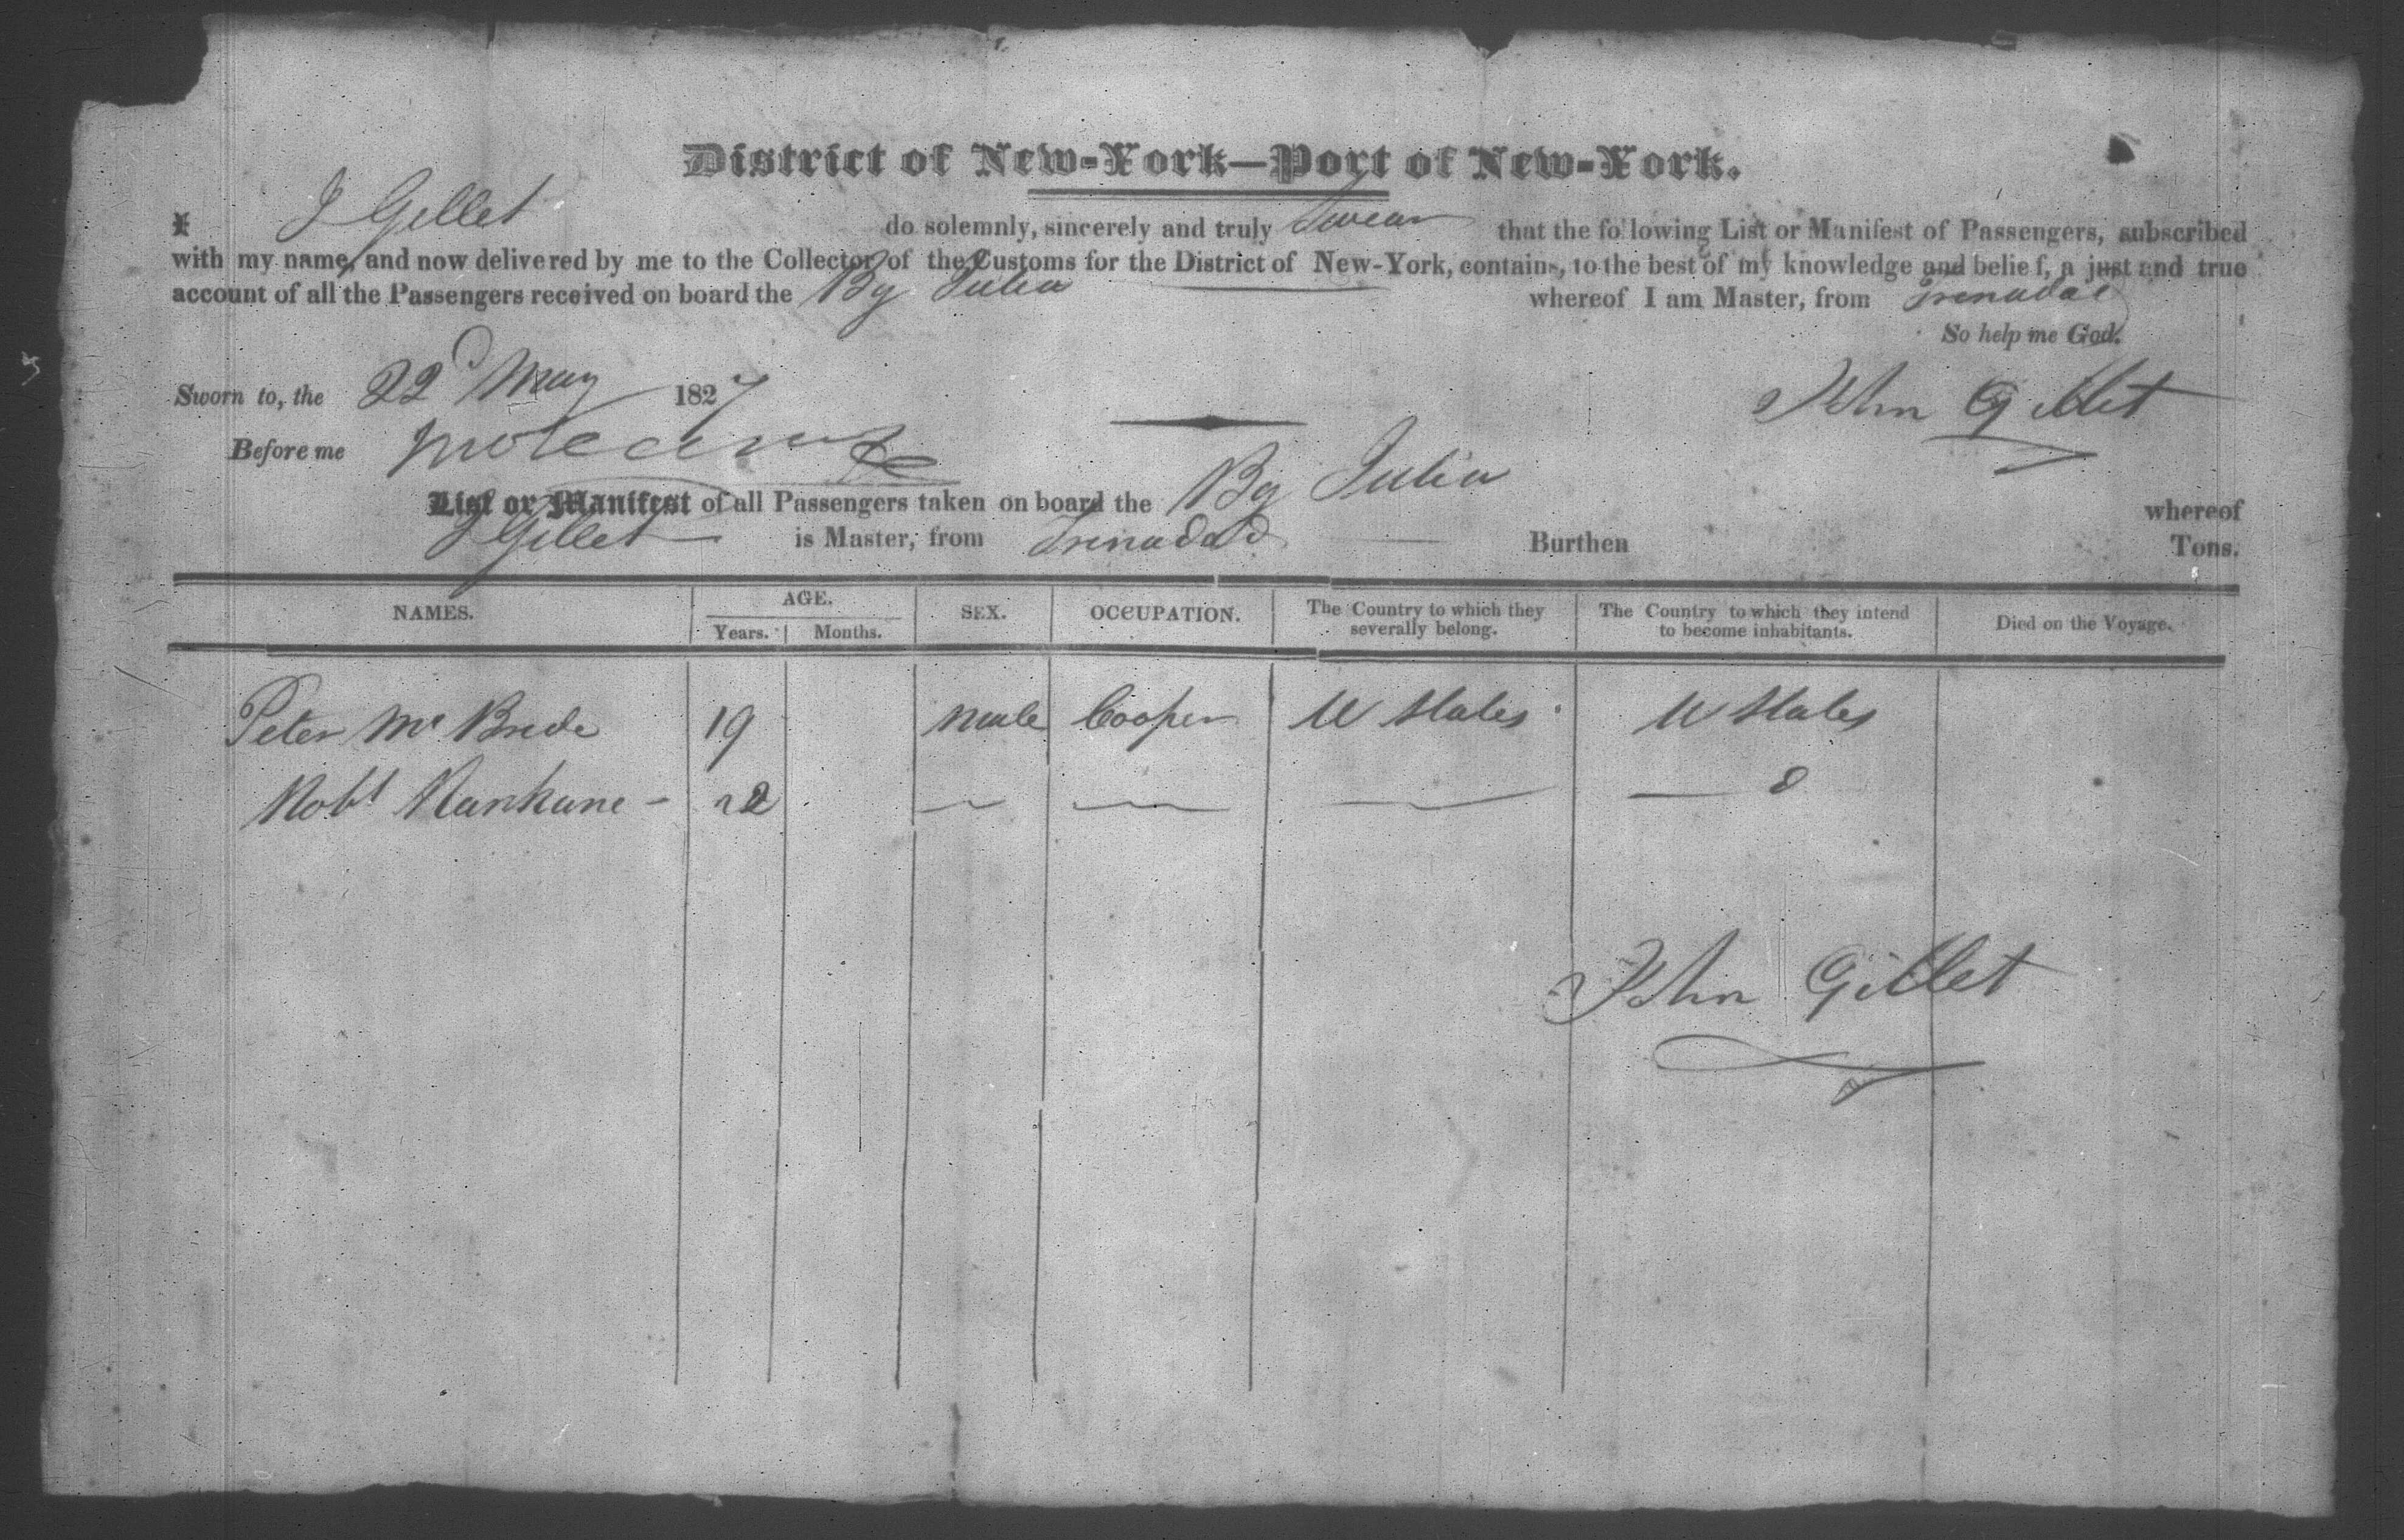 District of New-York—Port of New-York.
I J Gillet do solemnly, sincerely and truly Swear that the following List or Manifest of Passengers, subscribed
with my name, and now delivered by me to the Collector of the Customs for the District of New-York, contains, to the best of my knowledge and belief, a just and true
account of all the Passengers received on board the Bg Julia whereof I am Master, from Trinadad
So help me God.
Sworn to, the 22d May 1827
John Gillet
Before me
List or Manifest of all Passengers taken on board the Bg Julia whereof
J Gillet is Master, from Trinadad Burthen Tons.
NAMES. AGE. SEX. OCCUPATION. The Country to which they severally belong. The Country to which they intend to become inhabitants. Died on the Voyage.
Years. Months.
Peter Mc Bride 19 male Cooper U States U States
Robt 22 — — — —
John Gillet